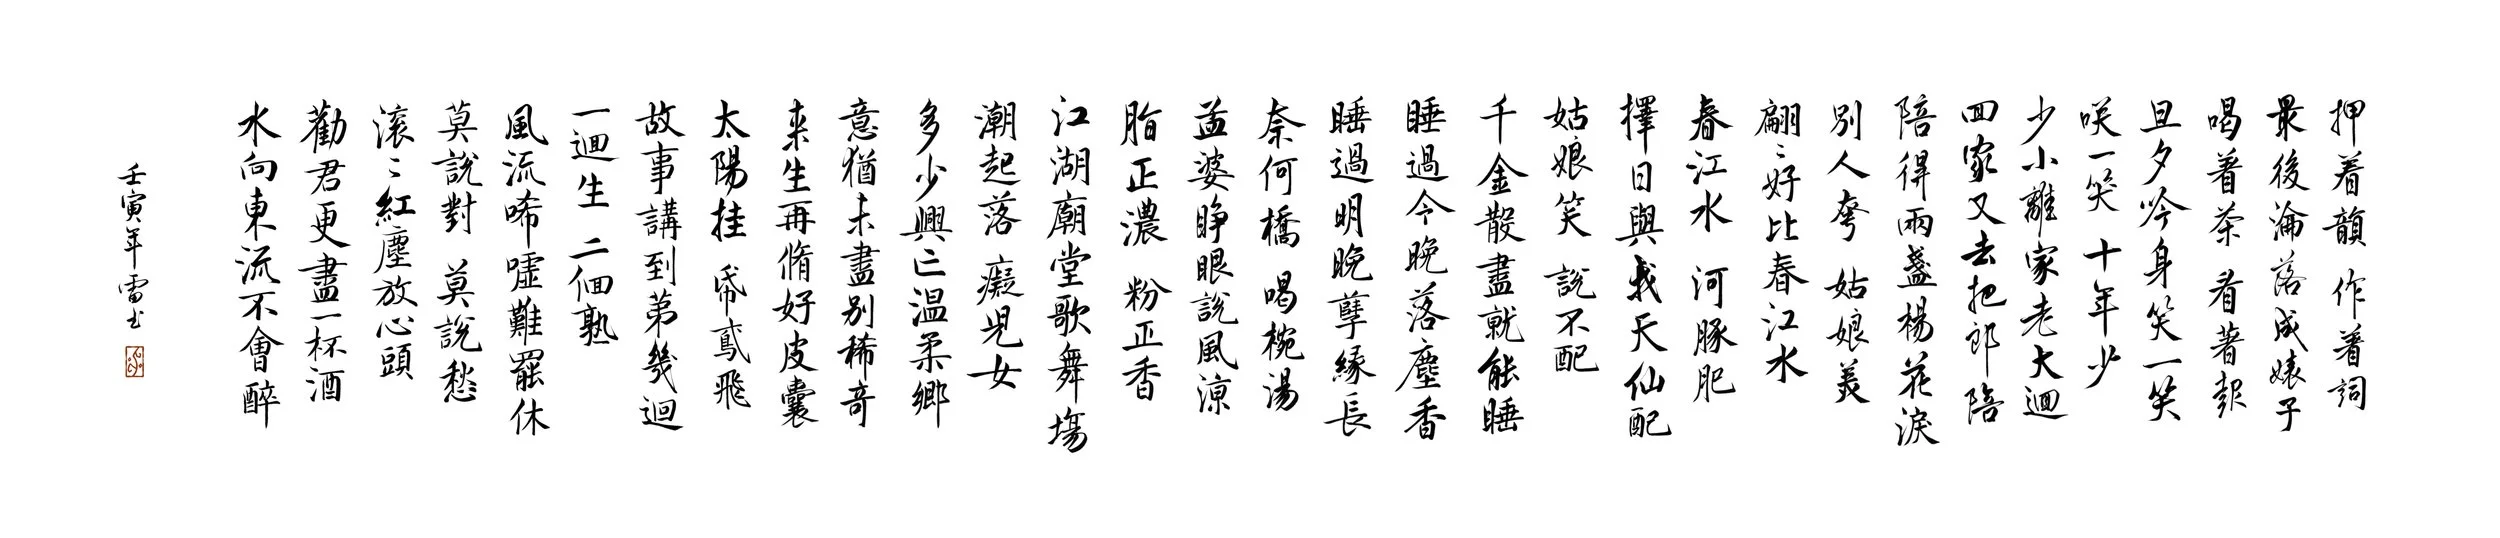 押着韻 作着詞
最後淪落成婊子
喝着茶 看著報
旦夕吟身笑一笑
咲一哭 十年少
少小離家老大迴
回家又去把郎陪
陪得兩盞楊花淚
別人夸 姑娘美
翩〻好比春江水
春江水 河豚肥
擇日與我天仙配
姑娘笑 說不配
千金散盡就能睡
睡過今晚落塵香
睡過明晚孽緣長
奈何橋 喝椀湯
孟婆睜眼說風涼
脂正濃 粉正香
江湖廟堂歌舞塲
潮起落 癡児女
多少興亡温柔鄉
意猶未盡別稀奇
来生再脩好皮囊
太陽挂 纸鳶飛
故事講到第幾迴
一迴生 二個熟
風流唏嘘難罷休
莫說對 莫說愁
滚〻紅塵放心頭
勸君更盡一杯酒
水向東流不會醉
壬寅年雷书